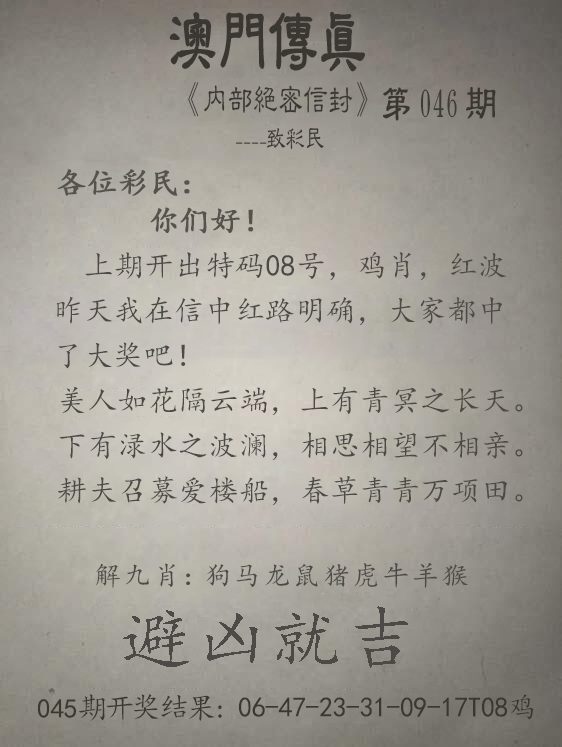 澳門傳真
《内部絕密信封》第046期
----致彩民
各位彩民：
你们好！
上期开出特码08号，鸡肖，红波
昨天我在信中红路明确，大家都中
了大奖吧！
美人如花隔云端，上有青冥之长天。
下有渌水之波澜，相思相望不相亲。
耕夫召募爱楼船，春草青青万项田。
解九肖：狗马龙鼠猪虎牛羊猴
避凶就吉
045期开奖结果：06-47-23-31-09-17T08鸡